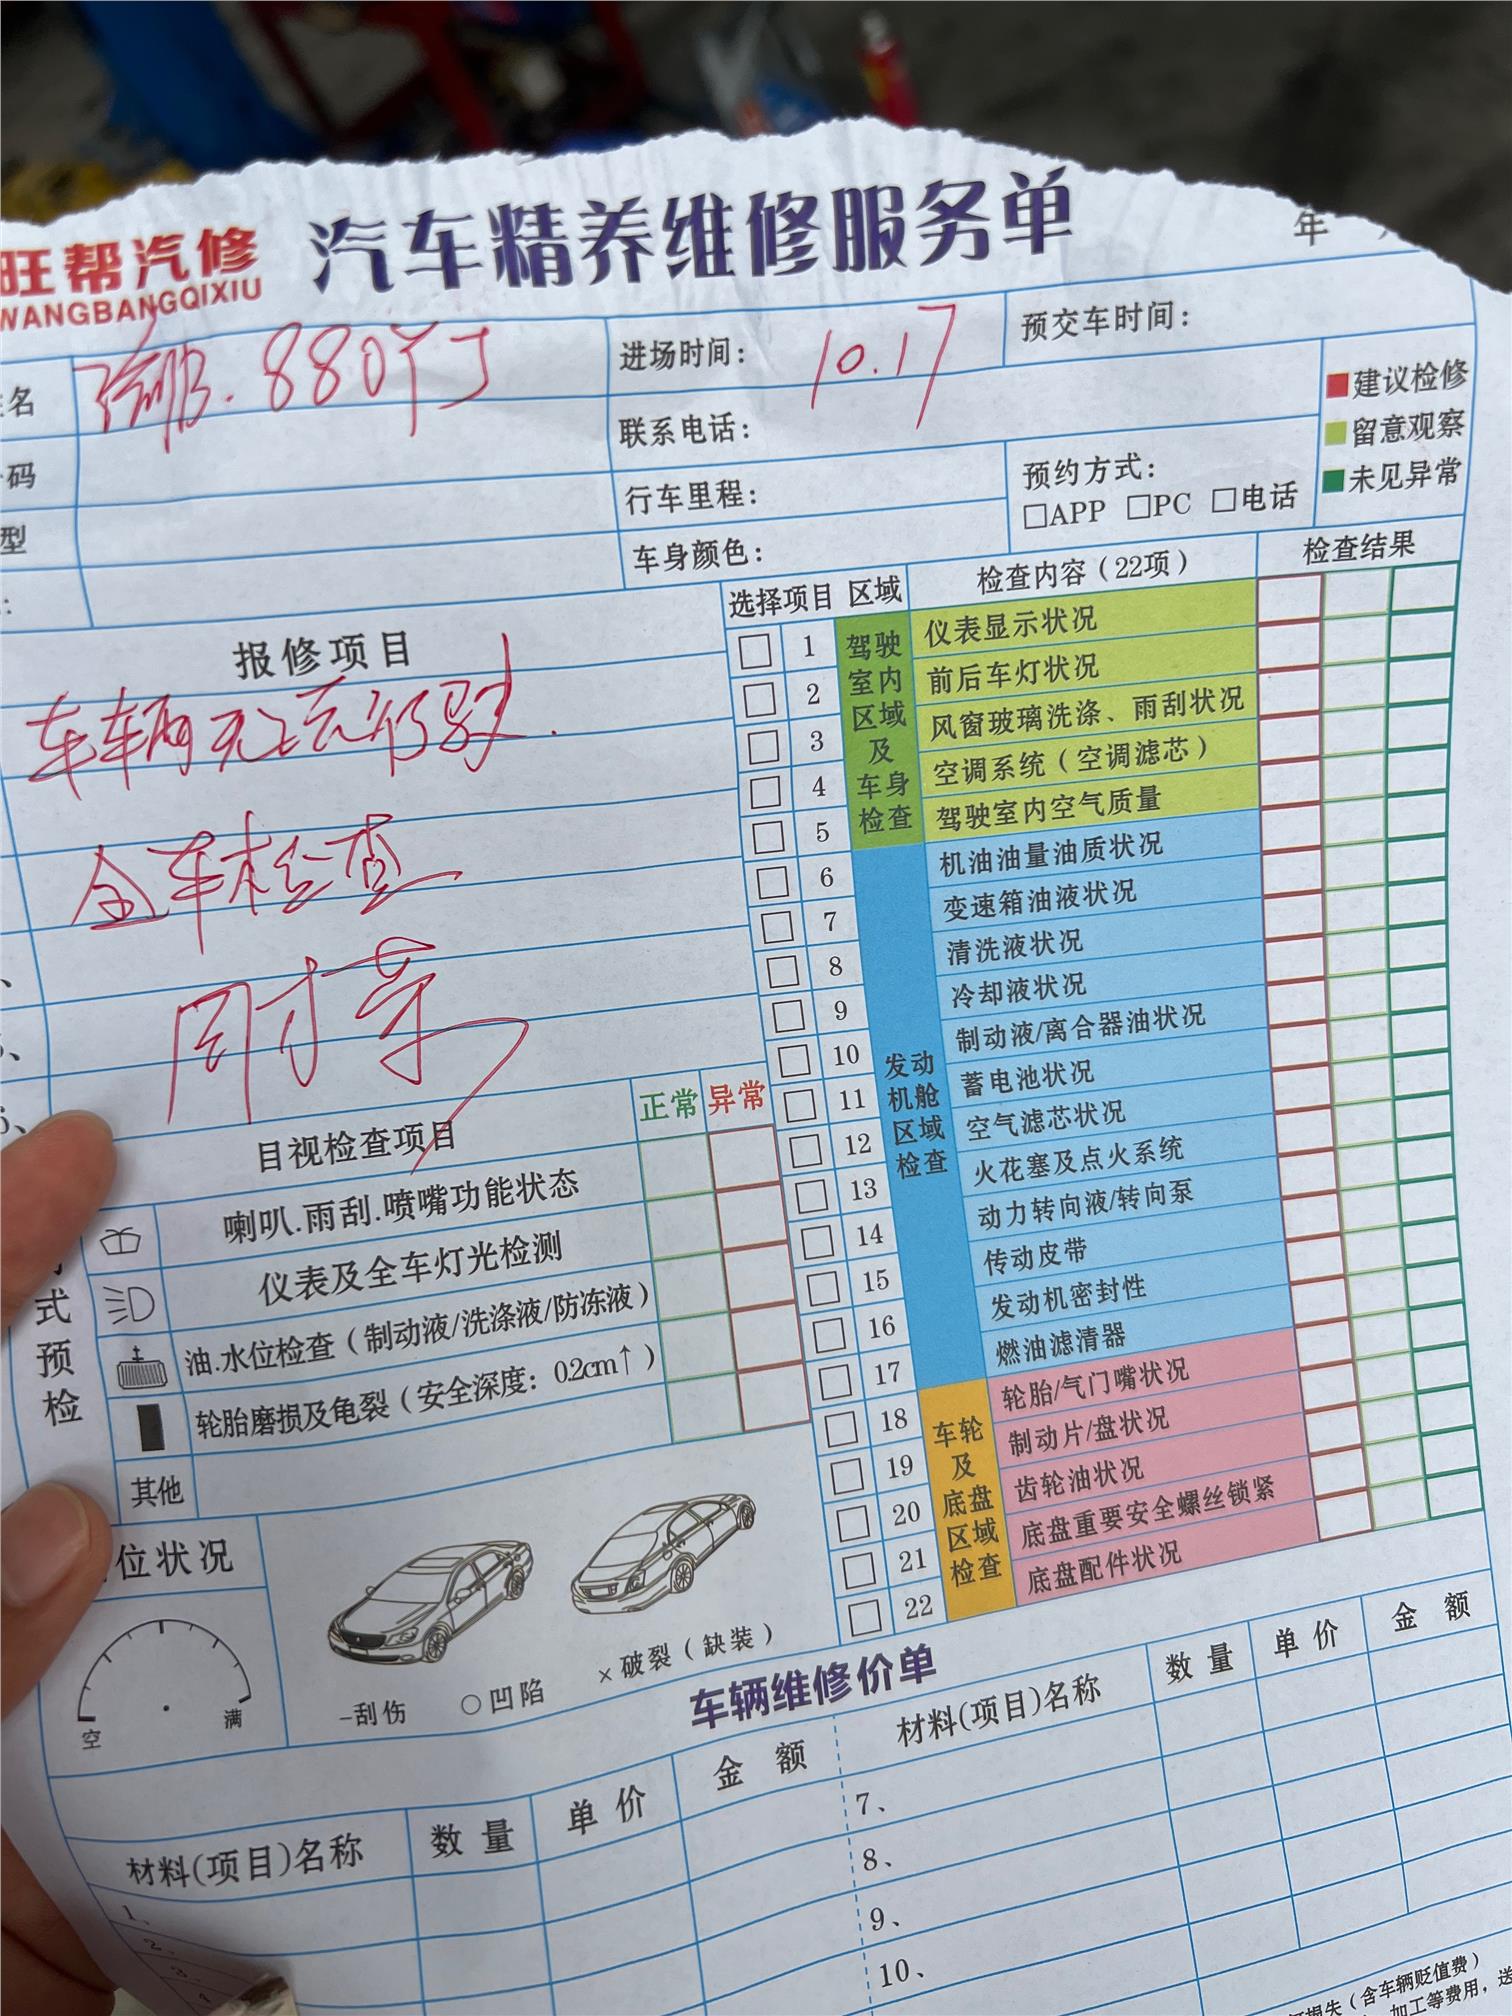 旺帮汽修
WANGBANGQIXIU
汽车精养维修服务单
年
名
B.880YJ
进场时间：
10.17
预交车时间：
码
联系电话：
型
行车里程：
预约方式：
□APP □PC □电话
车身颜色：
建议检修
留意观察
未见异常
报修项目
车辆无法行驶.
全车检查
周才荣
选择项目 区域 检查内容（22项） 检查结果
驾驶室内区域及车身检查
1 仪表显示状况
2 前后车灯状况
3 风窗玻璃洗涤、雨刮状况
4 空调系统（空调滤芯）
5 驾驶室内空气质量
发动机舱区域检查
6 机油油量油质状况
7 变速箱油液状况
8 清洗液状况
9 冷却液状况
10 制动液/离合器油状况
11 蓄电池状况
12 空气滤芯状况
13 火花塞及点火系统
14 动力转向液/转向泵
15 传动皮带
16 发动机密封性
17 燃油滤清器
车轮及底盘区域检查
18 轮胎/气门嘴状况
19 制动片/盘状况
20 齿轮油状况
21 底盘重要安全螺丝锁紧
22 底盘配件状况
目视检查项目 正常 异常
式预检
喇叭.雨刮.喷嘴功能状态
仪表及全车灯光检测
油.水位检查（制动液/洗涤液/防冻液）
轮胎磨损及龟裂（安全深度：0.2cm↑）
其他
位状况
空 满
-刮伤 ○凹陷 ×破裂（缺装）
车辆维修价单
材料(项目)名称 数量 单价 金额
材料(项目)名称 数量 单价 金额
1、
2、
3、
7、
8、
9、
10、
损失（含车辆贬值费）
加工等费用，送